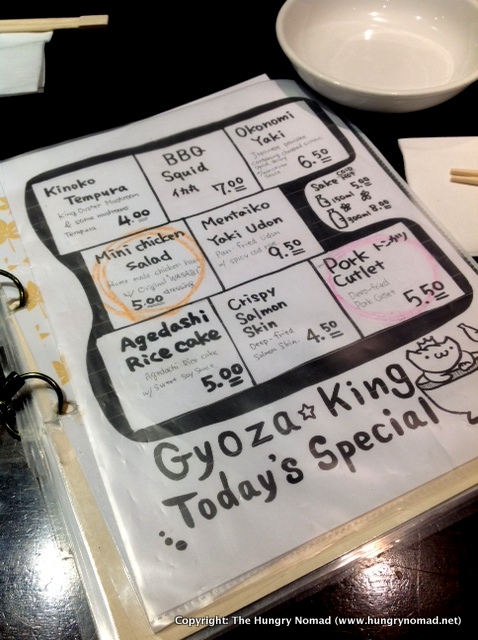 Kinoko
Tempura
King Oyster Mushroom
Tempura
4.00
BBQ
Squid
イカ丸 7.00
Okonomi
Yaki
Japanese pancake
6.50
Sake
5.00
300ml 8.00
Mini chicken
Salad
Home made chicken ham
w/ Original WASABI
dressing
5.00
Mentaiko
Yaki Udon
Pan fried Udon
w/ spicy cod roe
9.50
Pork トンカツ
Cutlet
Deep-fried
Pork Cutlet
5.50
Agedashi
Rice Cake
Agedashi Rice cake
w/ Sweet Soy Sauce
5.00
Crispy
Salmon
Skin
Deep-fried
Salmon Skin
4.50
Gyoza☆King
Today's Special
Copyright: The Hungry Nomad (www.hungrynomad.net)